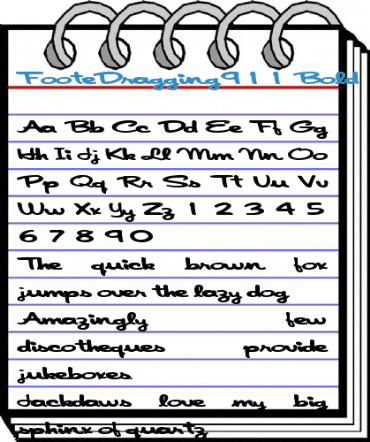 FooteDragging911 Bold
Aa Bb Cc Dd Ee Ff Gg
Hh Ii Jj Kk Ll Mm Nn Oo
Pp Qq Rr Ss Tt Uu Vv
Ww Xx Yy Zz 1 2 3 4 5
6 7 8 9 0
The quick brown fox
jumps over the lazy dog
Amazingly few
discotheques provide
jukeboxes
Jackdaws love my big
sphinx of quartz